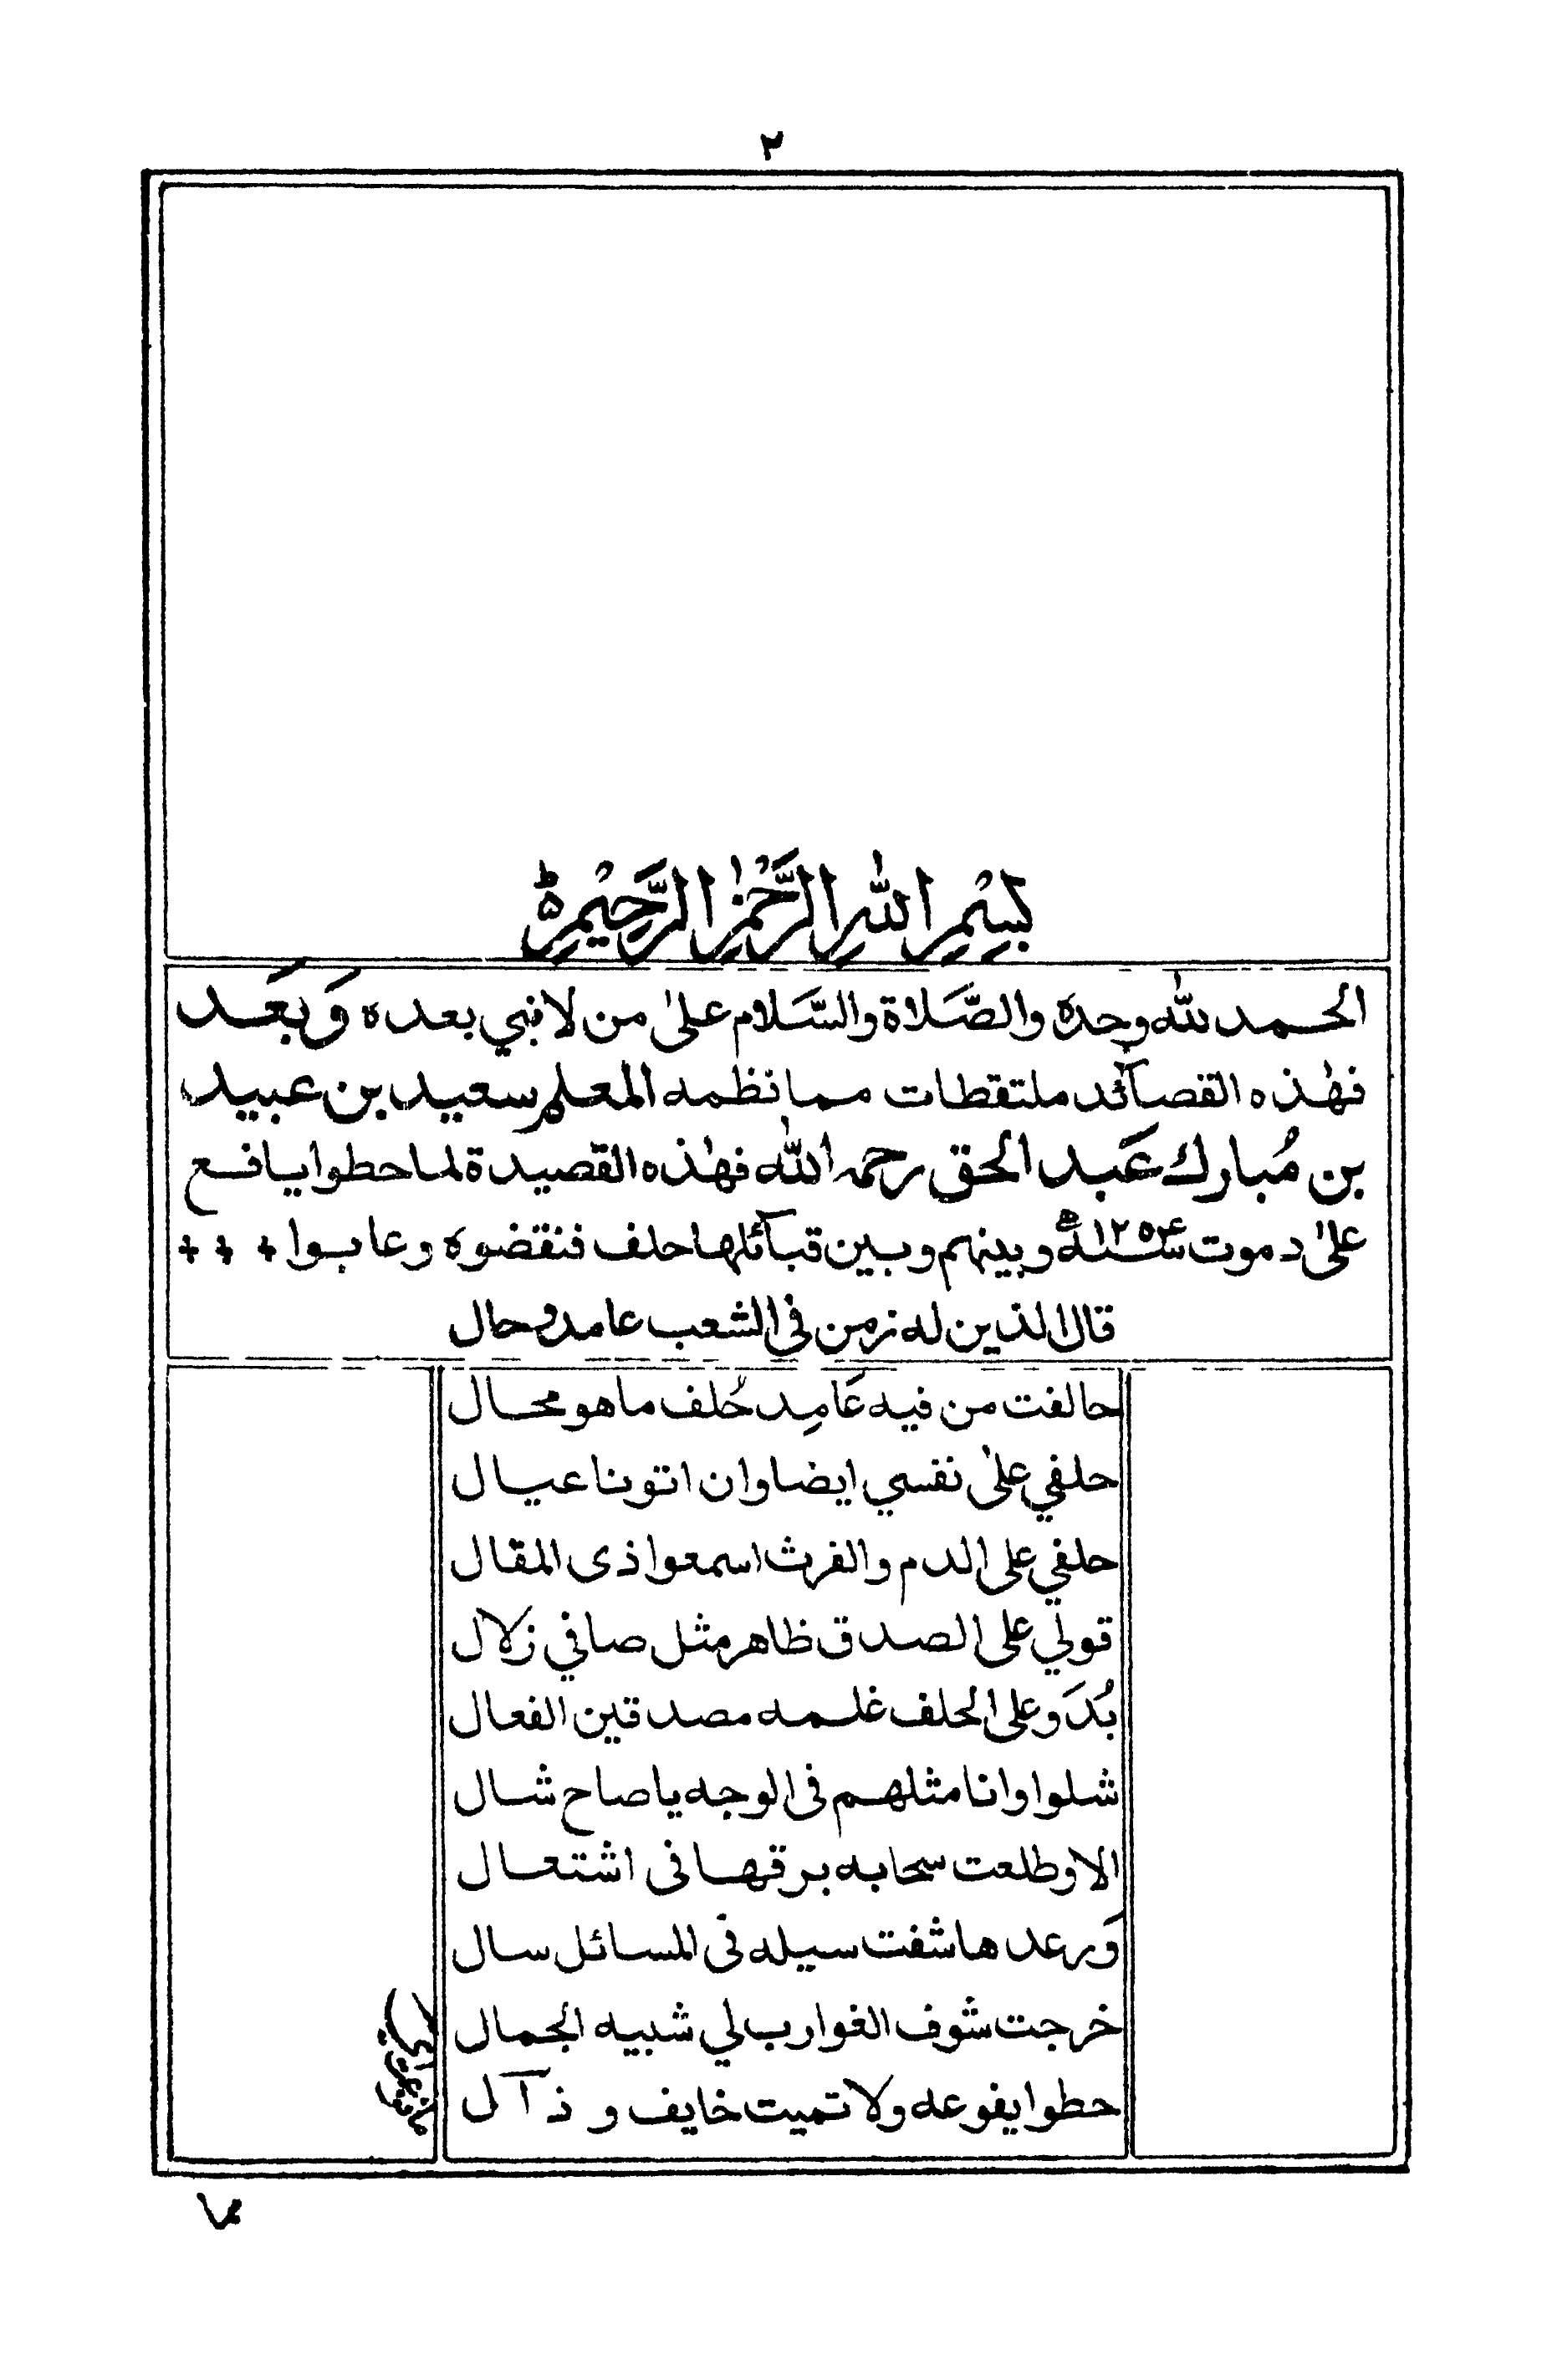 ٢
بِسْمِ اللهِ الرَّحْمٰنِ الرَّحِيْمِ
الحمد لله وحده والصَّلاة والسَّلام علىٰ من لا نبي بعده وَبَعَد
فهٰذه القصآئد ملتقطات مما نظمه المعلم سعيد بن عبيد
بن مُبارك عَبد الحق رحمه الله فهٰذه القصيدة لما حطوا يافع
علىٰ دموت سنة ١٢٥٤ وبينهم وبين قبآئلها حلف فنقضوه وعابوا
قال الذين له زمن فى الشعب عامد وحال
حالفت من فيه عَامِد حُلف ما هو محال
حلفي علىٰ نفسي ايضا وان اتونا عيال
حلفي على الدم والفرث اسمعوا ذى المقال
قولي على الصدق ظاهر مثل صافي زلال
بُدَ وعلى الحلف غلمه مصدقين الفعال
شلوا وانا مثلهم فى الوجه يا صاح شال
الا وطلعت سحابه برقها فى اشتعال
وَرعدها شفت سيله فى المسائل سال
خرجت شوف الغوارب لي شبيه الجمال
حطوا يفوعه ولا تميت خايف وذآل